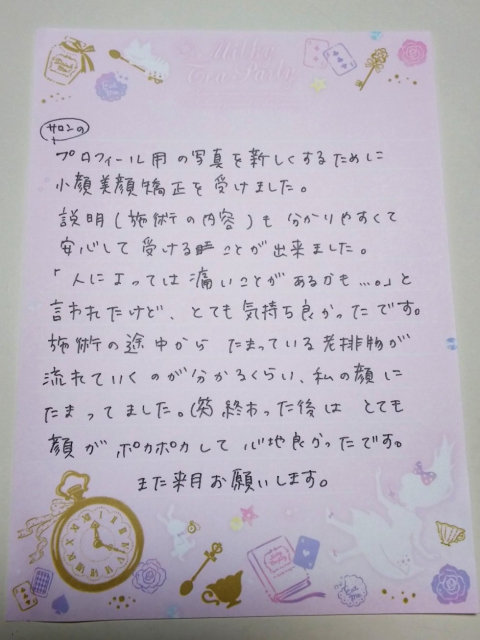 Milky
Tea Party
サロンの
プロフィール用の写真を新しくするために
小顔美顔矯正を受けました。
説明(施術の内容)も分かりやすくて
安心して受けることが出来ました。
「人によっては痛いことがあるかも…。」と
言われたけど、とても気持ち良かったです。
施術の途中から たまっている老排物が
流れていくのが分かるくらい、私の顔に
たまってました。(笑)終わった後は とても
顔がポカポカして 心地良かったです。
また来月お願いします。